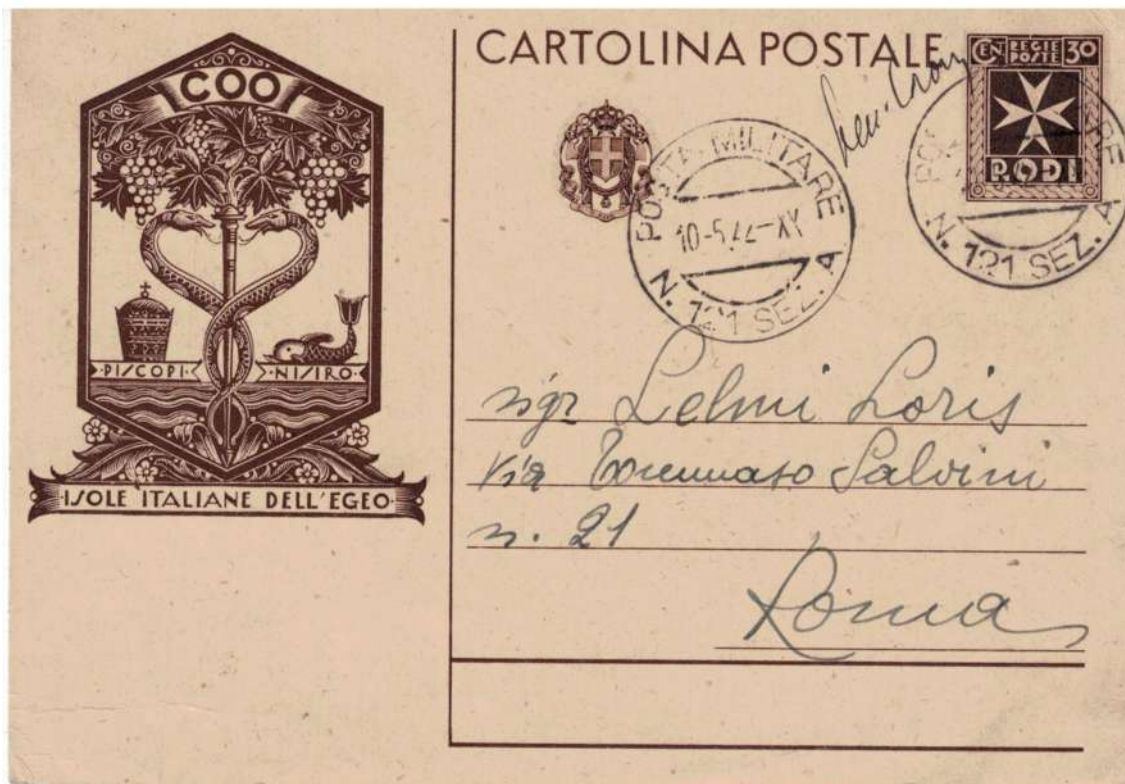 COO
PISCOPI
NISIRO
ISOLE ITALIANE DELL'EGEO
CARTOLINA POSTALE
CEN REGIE POSTE 30
RODI
POSTA MILITARE
N. 121 SEZ. A
N. 121 SEZ. A
sigr Lelmi Loris
Via Tommaso Salvini
n. 21
Roma